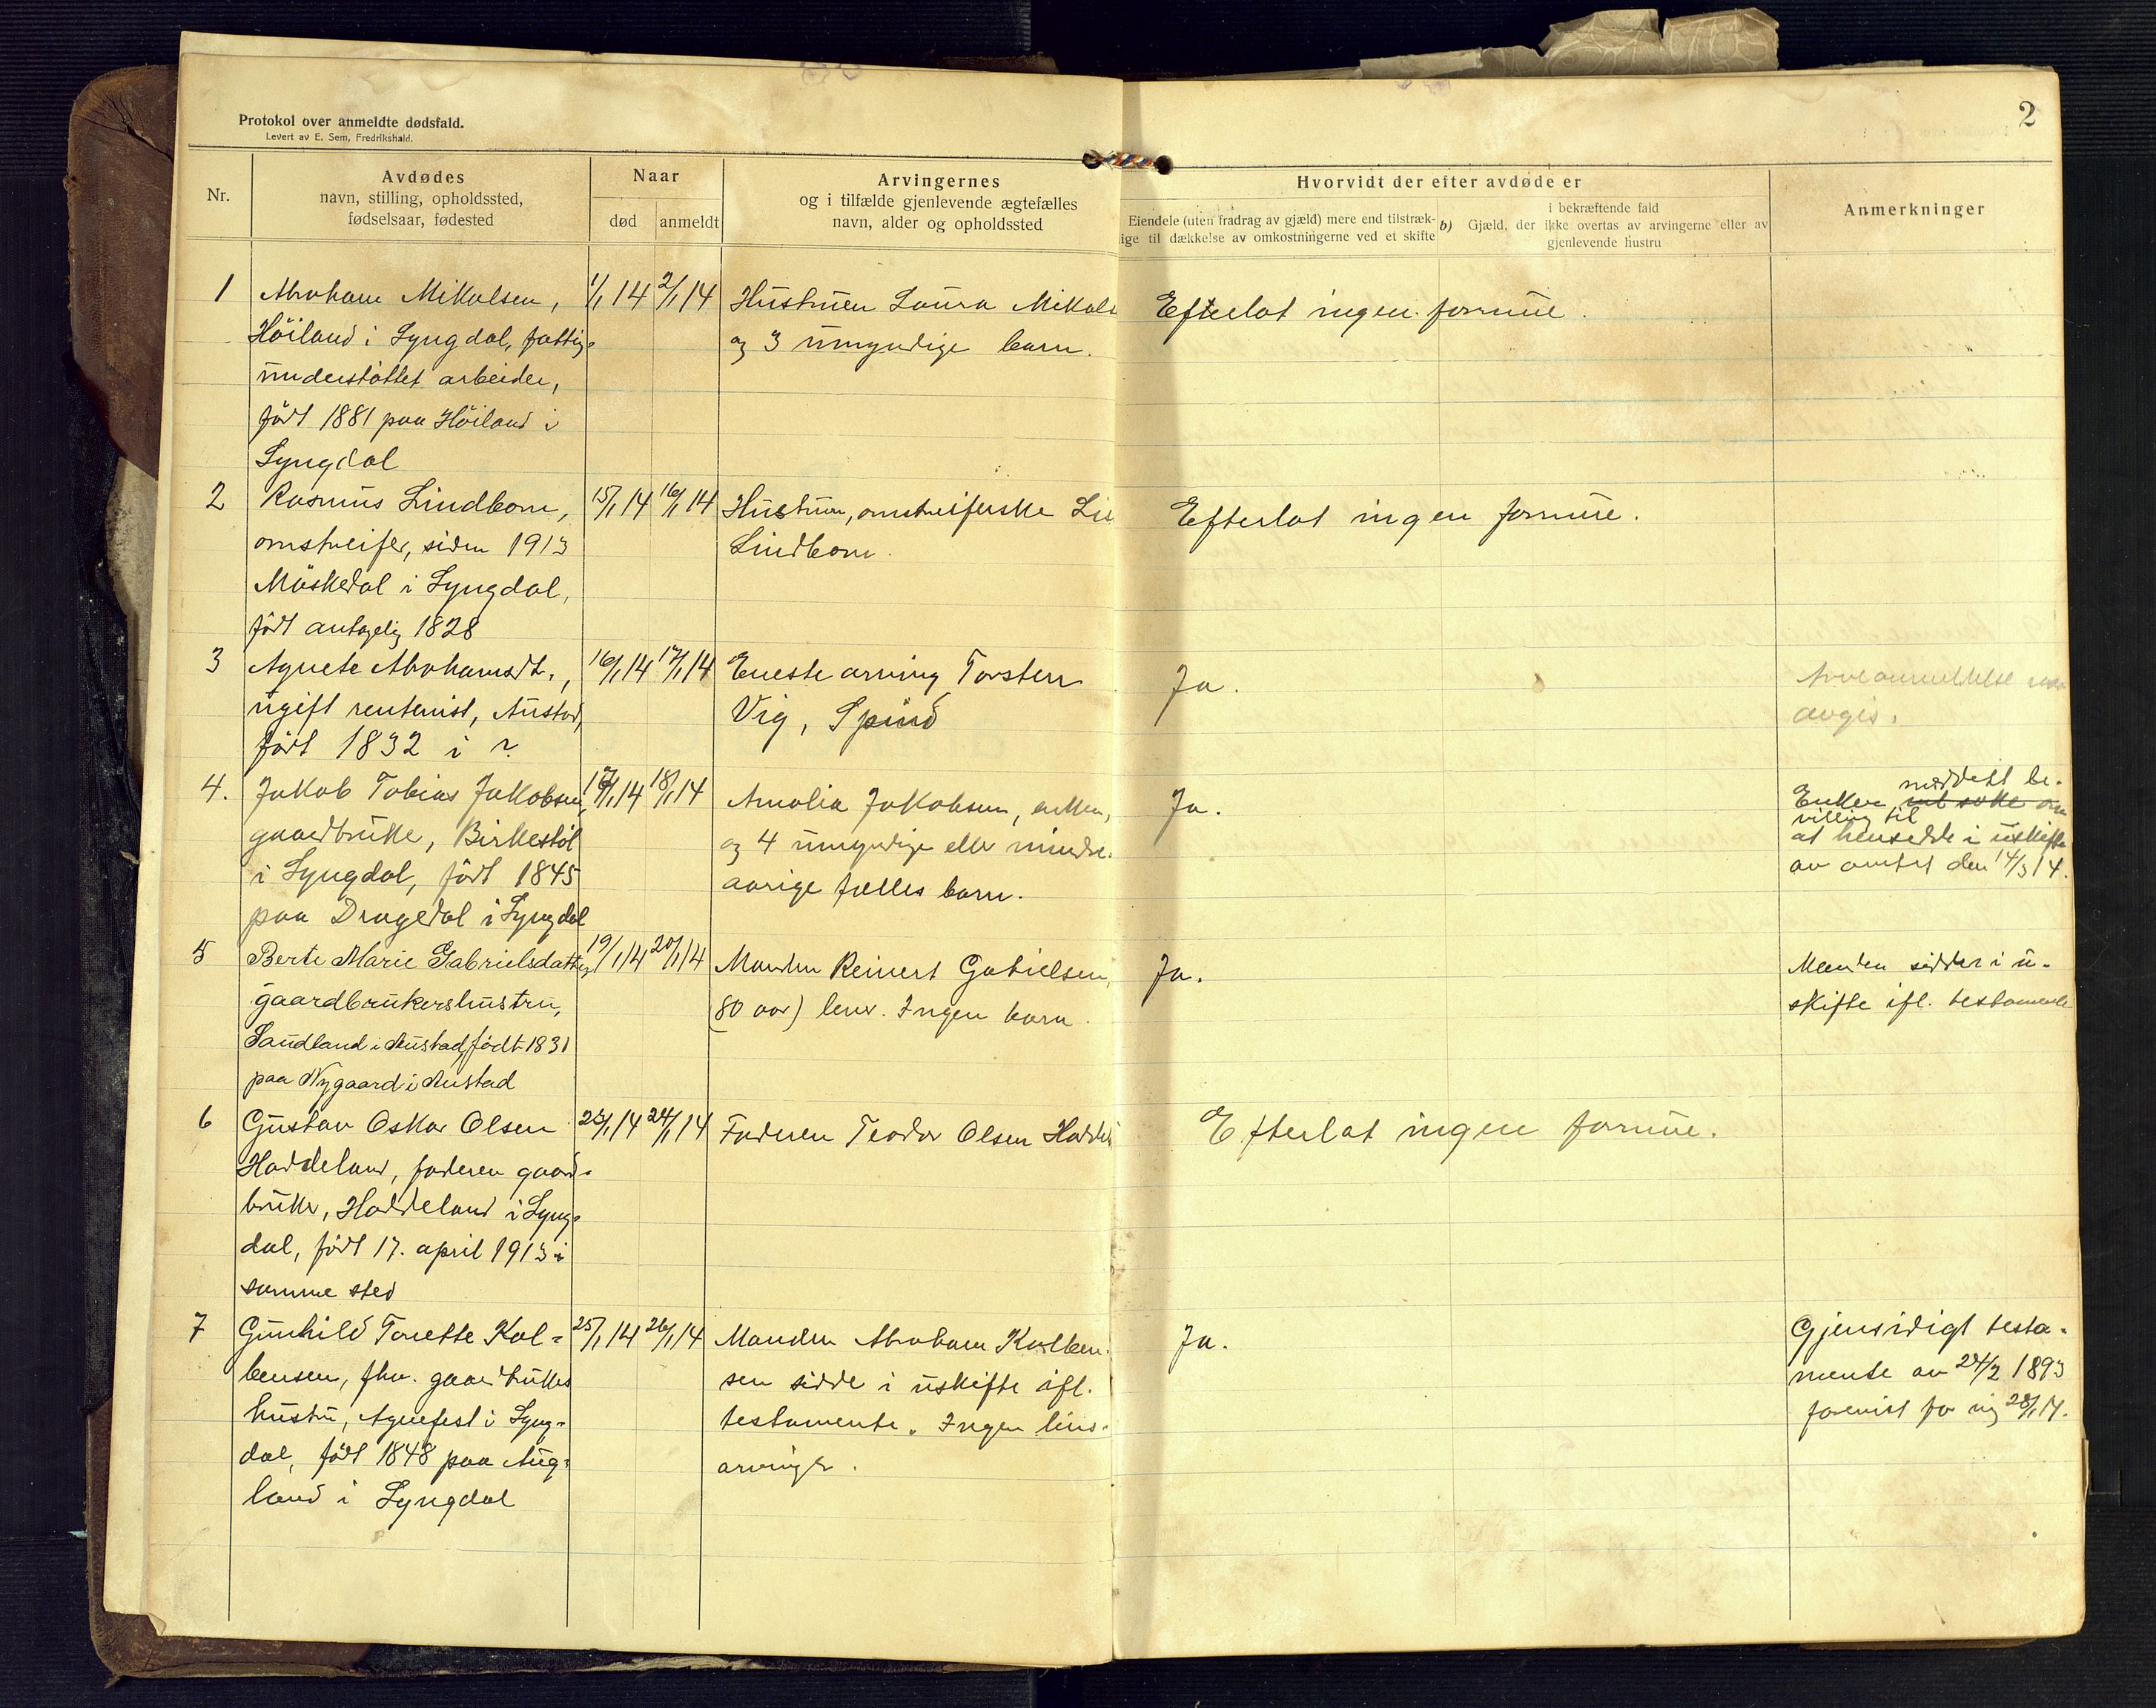 Protokol over anmeldte dødsfald.
Levert av E. Sem, Fredrikshald.
2
Nr.
Avdødes
navn, stilling, opholdssted,
fødselsaar, fødested
Naar
død
anmeldt
Arvingernes
og i tilfælde gjenlevende ægtefælles
navn, alder og opholdssted
Hvorvidt der efter avdøde er
Eiendele (uten fradrag av gjæld) mere end tilstræk-
ige til dækkelse av omkostningerne ved et skifte
i bekræftende fald
b) Gjæld, der ikke overtas av arvingerne eller av
gjenlevende hustru
Anmerkninger
1
Abraham Mikalsen,
Höiland i Lyngdal, fattig-
understöttet arbeider,
född 1881 paa Höiland i
Lyngdal
1/1 14
2/1 14
Hustruen Laura Mikals
og 3 umyndige barn.
Efterlot ingen formue.
2
Rasmus Lindbom,
omstreifer, siden 1913
Möskedal i Lyngdal,
födt antagelig 1828
15/1 14
16/1 14
Hustruen, omstreiferske
Lindbom.
Efterlot ingen formue.
3
Agnete Abrahamsdt.,
ugift rentenist, Austad,
födt 1832 i ?
16/1 14
17/1 14
Eneste arving Torsten
Vig, Spind
Ja.
Arveanmeldelse
avgis.
4.
Jakob Tobias Jakobsen,
gaardbruker, Birkestöl
i Lyngdal, födt 1845
paa Dragedal i Lyngdal
17/1 14
18/1 14
Amalia Jakobsen, enken,
og 4 umyndige eller mindre-
aarige fælles barn.
Ja.
meddelt be-
Enken vil söke om
villing til
at hensidde i uskifte
av amtet den 14/3 14.
5
Berte Marie Gabrielsdatter,
gaardbrukershustru,
Sandland i Austad, födt 1831
paa Nygaard i Austad
19/1 14
20/1 14
Manden Reinert Gabrielsen,
(80 aar) lever. Ingen barn.
Ja.
Manden sidder i u-
skifte ifl. testamente
6
Gustav Oskar Olsen
Haddeland, faderen gaard-
bruker, Haddeland i Lyng-
dal, födt 17. april 1913 i
samme sted
23/1 14
24/1 14
Faderen Teodor Olsen Haddel
Efterlot ingen formue.
7
Gunhild Tonette Kol-
bensen, fhv. gaardbrukers
hustru, Agnefest i Lyng-
dal, födt 1848 paa Aug-
land i Lyngdal
25/1 14
26/1 14
Manden Abraham Kolben-
sen sidder i uskifte ifl.
testamente. Ingen livs-
arvinger.
Ja.
Gjensidigt testa-
mente av 24/2 1893
forevist for mig 28/1 14.